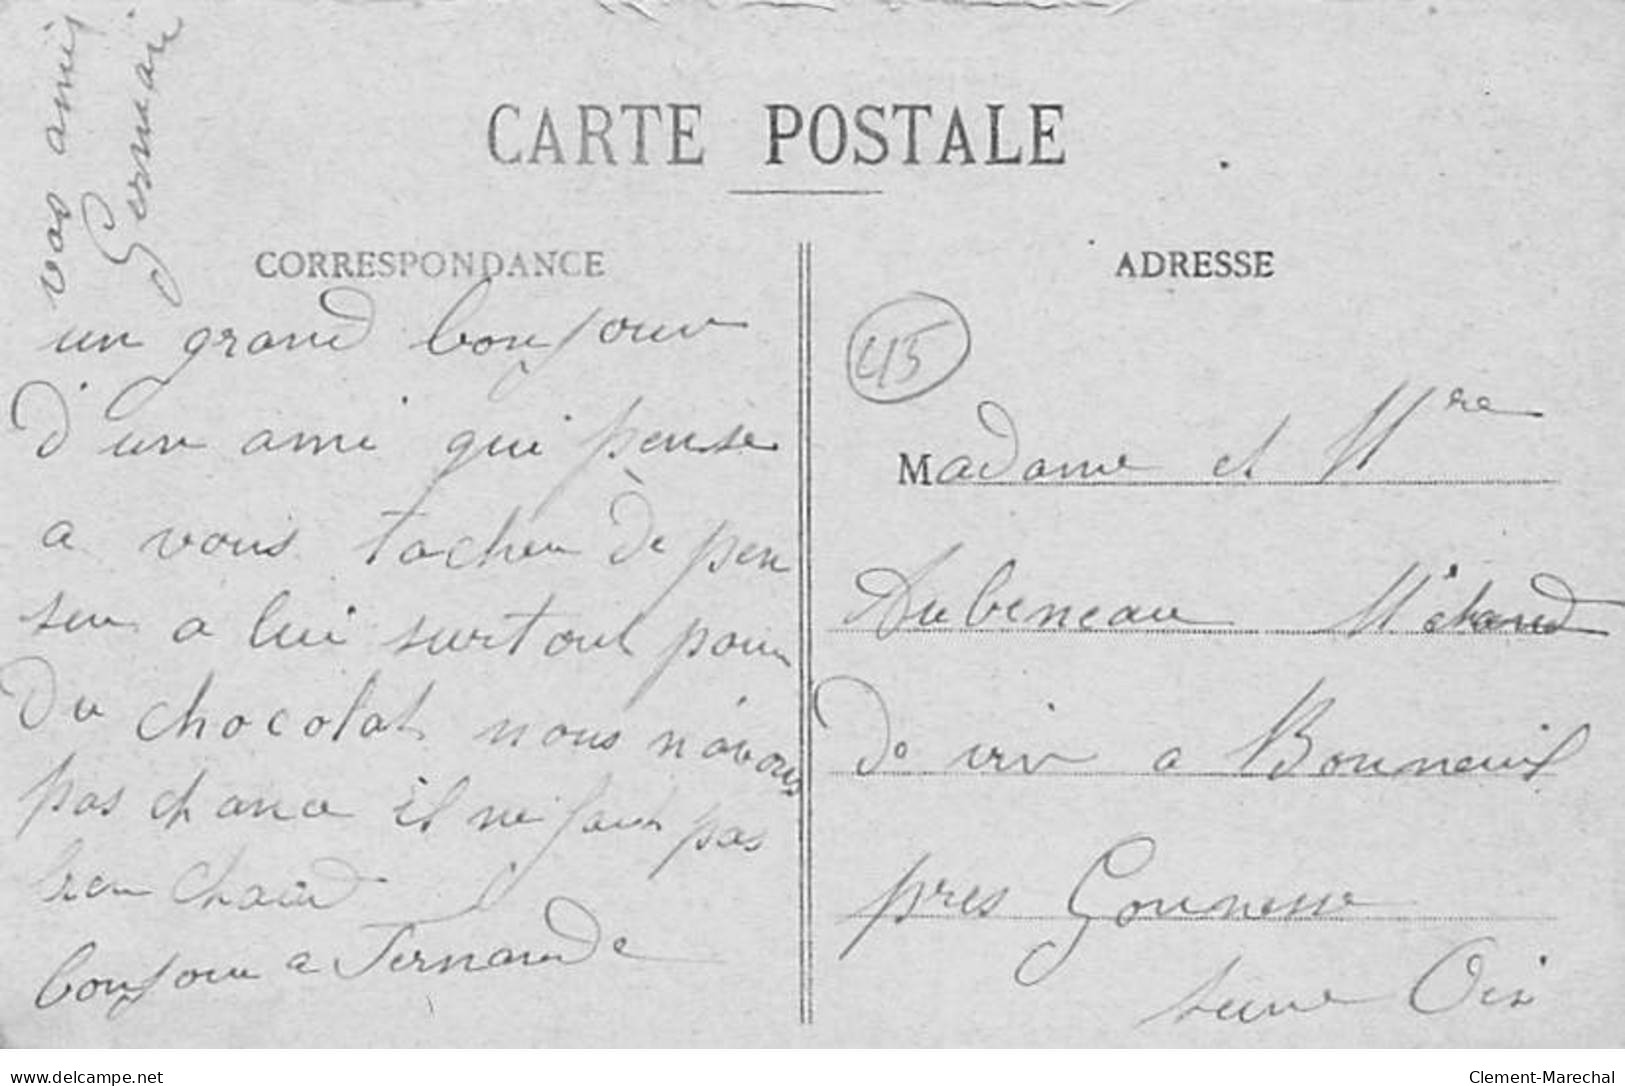 CARTE POSTALE
CORRESPONDANCE
un grand bonjour
d'un ami qui pense
a vous tacher de pen
ser a lui surtout pour
du chocolat nous n'avons
pas chance il ne fait pas
bien chaud
bonjour a Fernande
vos amis
Germain
ADRESSE
45
Madame et Mre
Aubeneau Mchand
de vin a Bonneuil
pres Gonnesse
Seine Oise
www.delcampe.net
Clement-Marechal